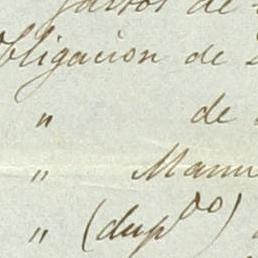 Gastos de
Obligacion de
" de
" Manu
" (dup^do)